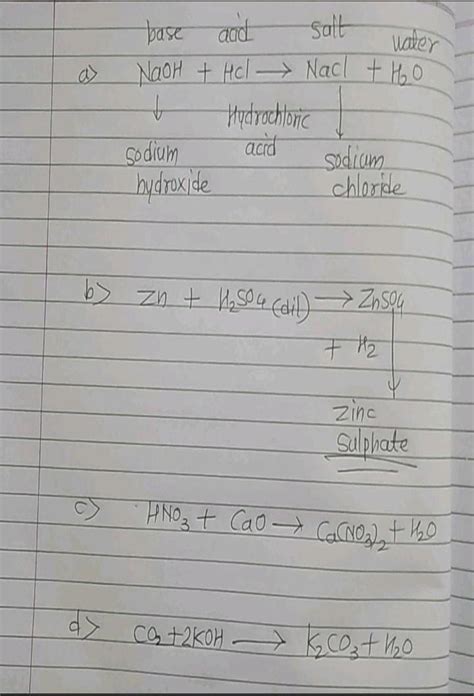 base acid salt water
a> NaOH + HCl → NaCl + H₂O
↓ Hydrochloric ↓
sodium acid sodium
hydroxide chloride
b> Zn + H₂SO₄ (dil) → ZnSO₄
+ H₂ ↓
Zinc
Sulphate
c> HNO₃ + CaO → Ca(NO₃)₂ + H₂O
d> CO₂ + 2KOH → K₂CO₃ + H₂O